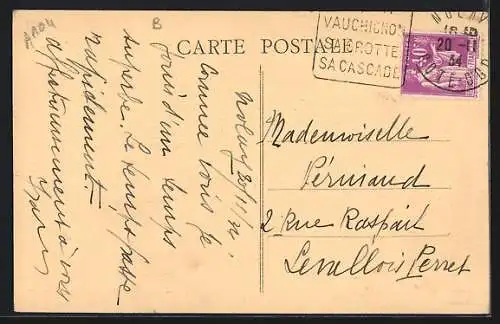 B
CARTE POSTALE
VAUCHIGNON
SA GROTTE
SA CASCADE
NOLAY
20 - 11
34
CÔTE-D'OR
Nolay 20/11/34.
Comme vous je
jouis d'un temps
superbe. Le temps passe
rapidement.
affectueusement à vous
Mademoiselle
Perniaud
2 Rue Raspail
Levallois Perret